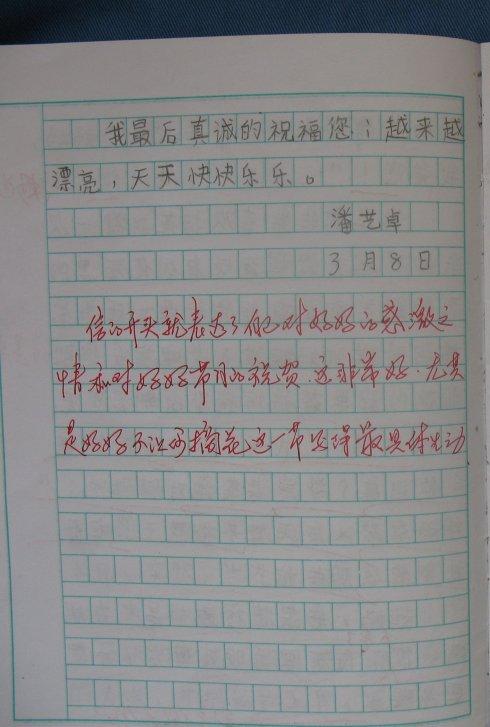 我最后真诚的祝福您:越来越
漂亮,天天快快乐乐。
潘艺卓
3月8日
信的开头就表达了你对好好的感激之
情和对好好节日的祝贺.这非常好.尤其
是好好不让你摘花这一节写得最具体生动